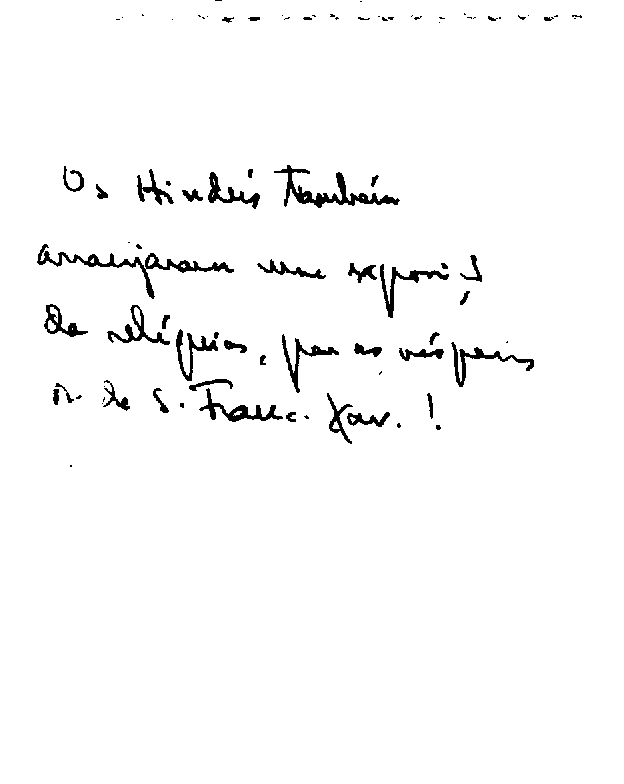 Os Hindús também
arranjaram uma exposi
de relíquias, para as vésperas
de S. Franc. Xav. !